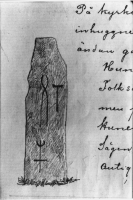 På kyrk
inhugge
ändan g
Hun
Folks
men
Gune
Sägen
antig